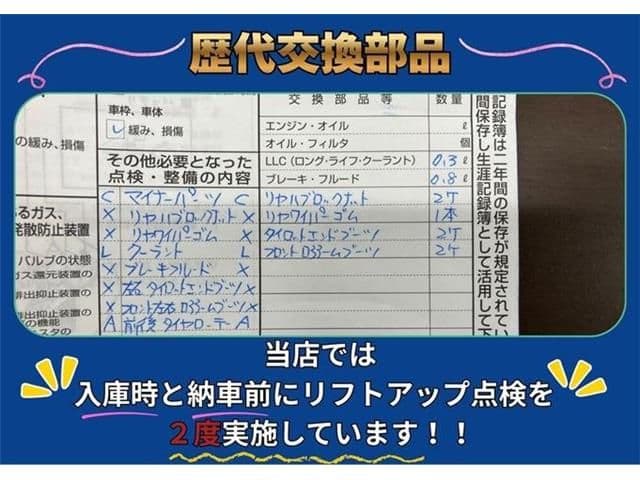 歴代交換部品
の緩み、損傷
るガス、
発散防止装置
バルブの状態
ガス還元装置の
排出抑止装置の
排出抑止装置の
の機能
車枠、車体
レ 緩み、損傷
その他必要となった
点検・整備の内容
C マイナーパーツ C
X リヤハブロックナット X
X リヤワイパーゴム X
L クーラント L
X ブレーキフルード X
X 左右タイロットエンドブーツ X
X フロント左右ロアアームブーツ X
A 前後タイヤローテー A
交換部品等 数量
エンジン・オイル ℓ
オイル・フィルタ 個
LLC(ロング・ライフ・クーラント) 0.3 ℓ
ブレーキ・フルード 0.8 ℓ
リヤハブロックナット 2ケ
リヤワイパーゴム 1本
タイロットエンドブーツ 2ケ
フロントロアアームブーツ 2ケ
記録簿は二年間の保存が規定されてい
間保存し生涯記録簿として活用して下
当店では
入庫時と納車前にリフトアップ点検を
２度実施しています！！